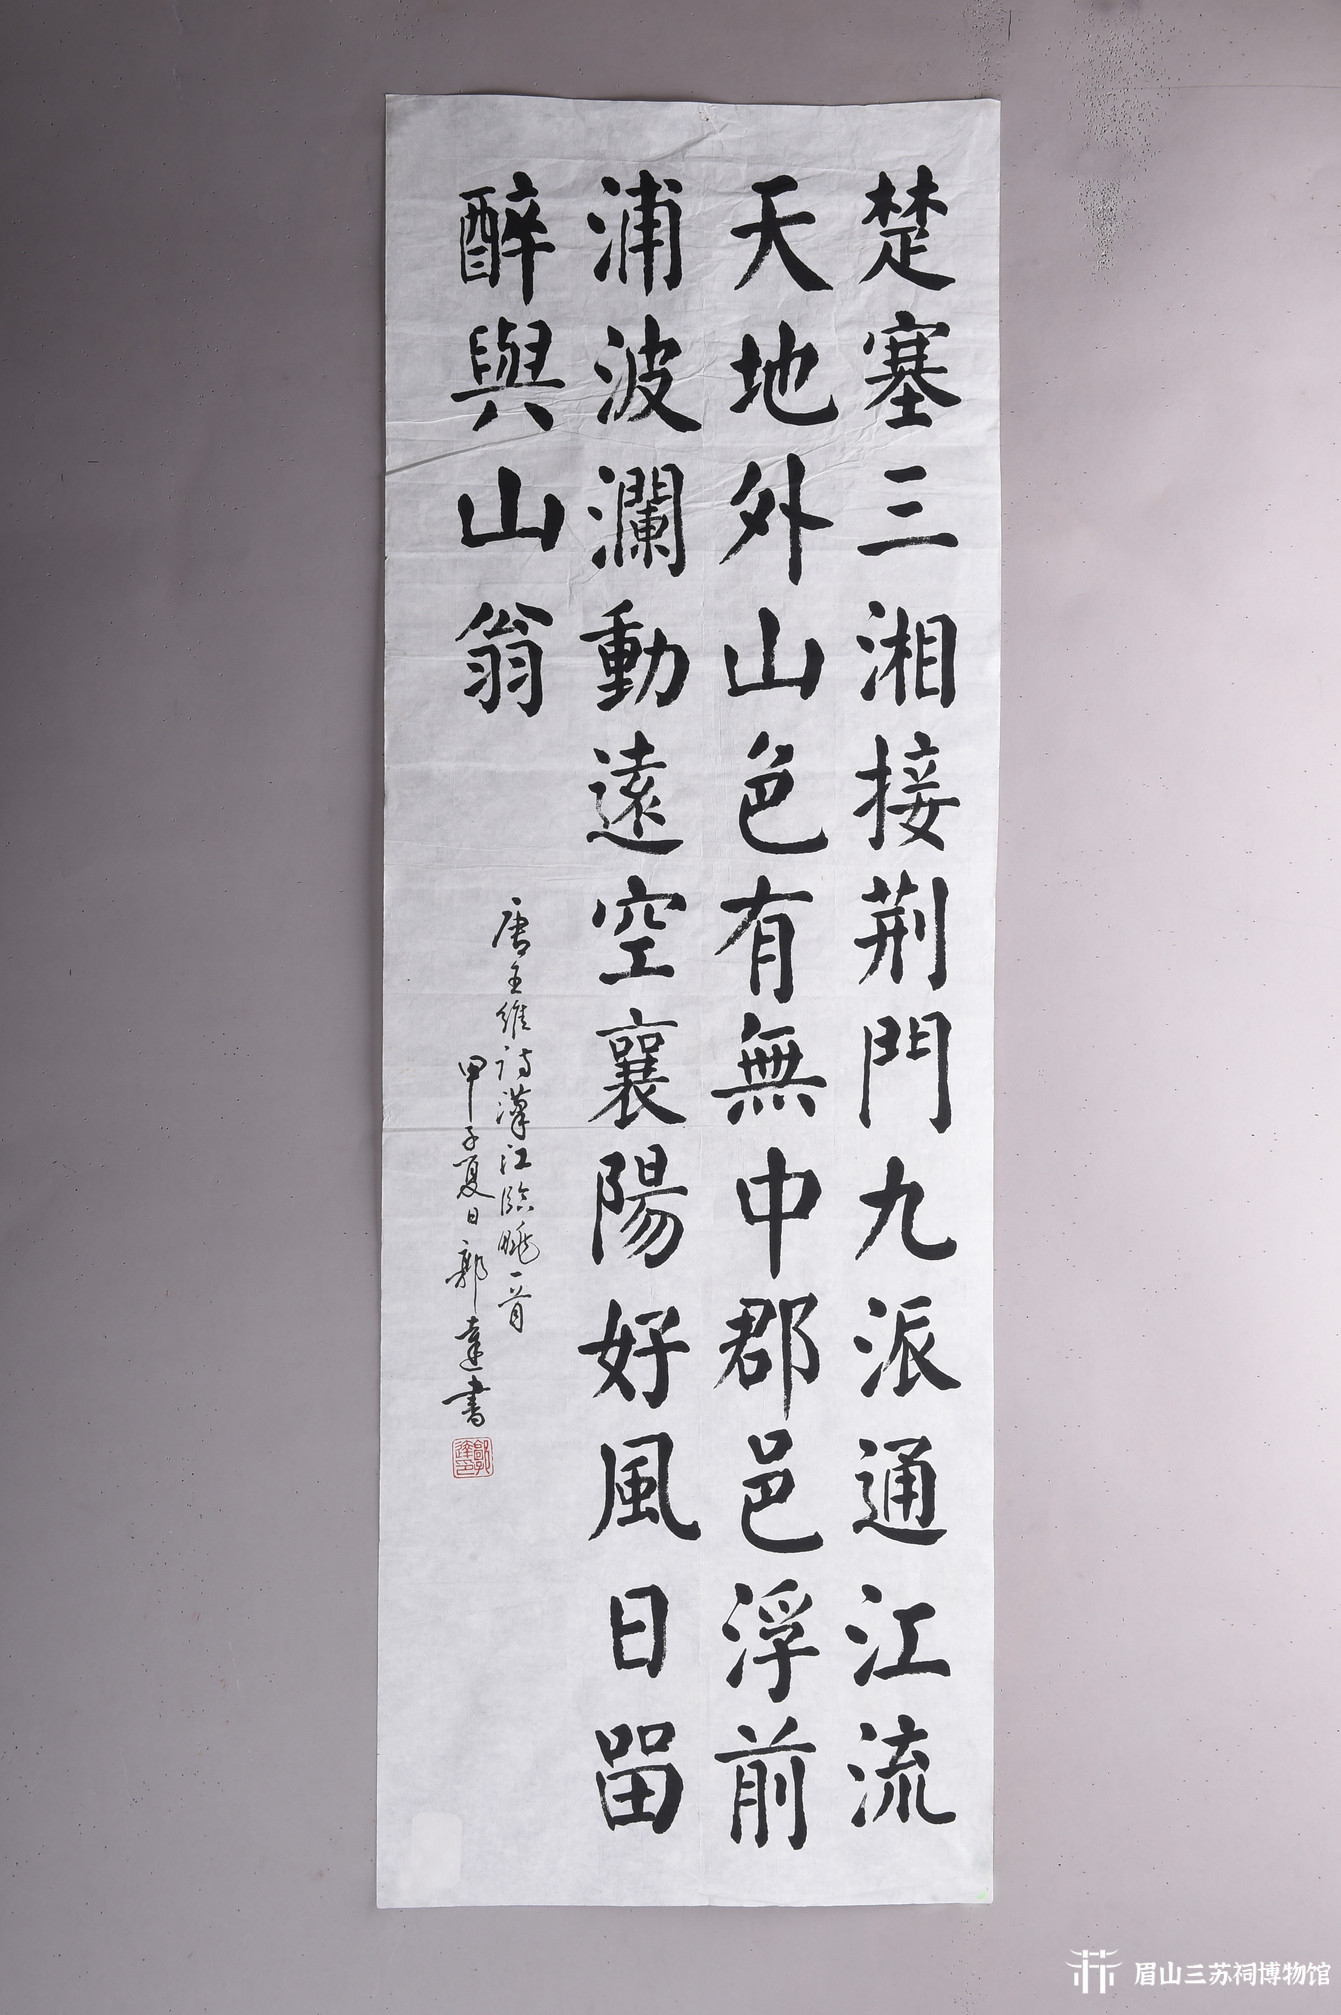 楚塞三湘接荆門九派通江流
天地外山色有無中郡邑浮前
浦波瀾動遠空襄陽好風日留
醉與山翁
唐王維詩漢江臨眺一首
甲子夏日郭達書
郭達
眉山三苏祠博物馆